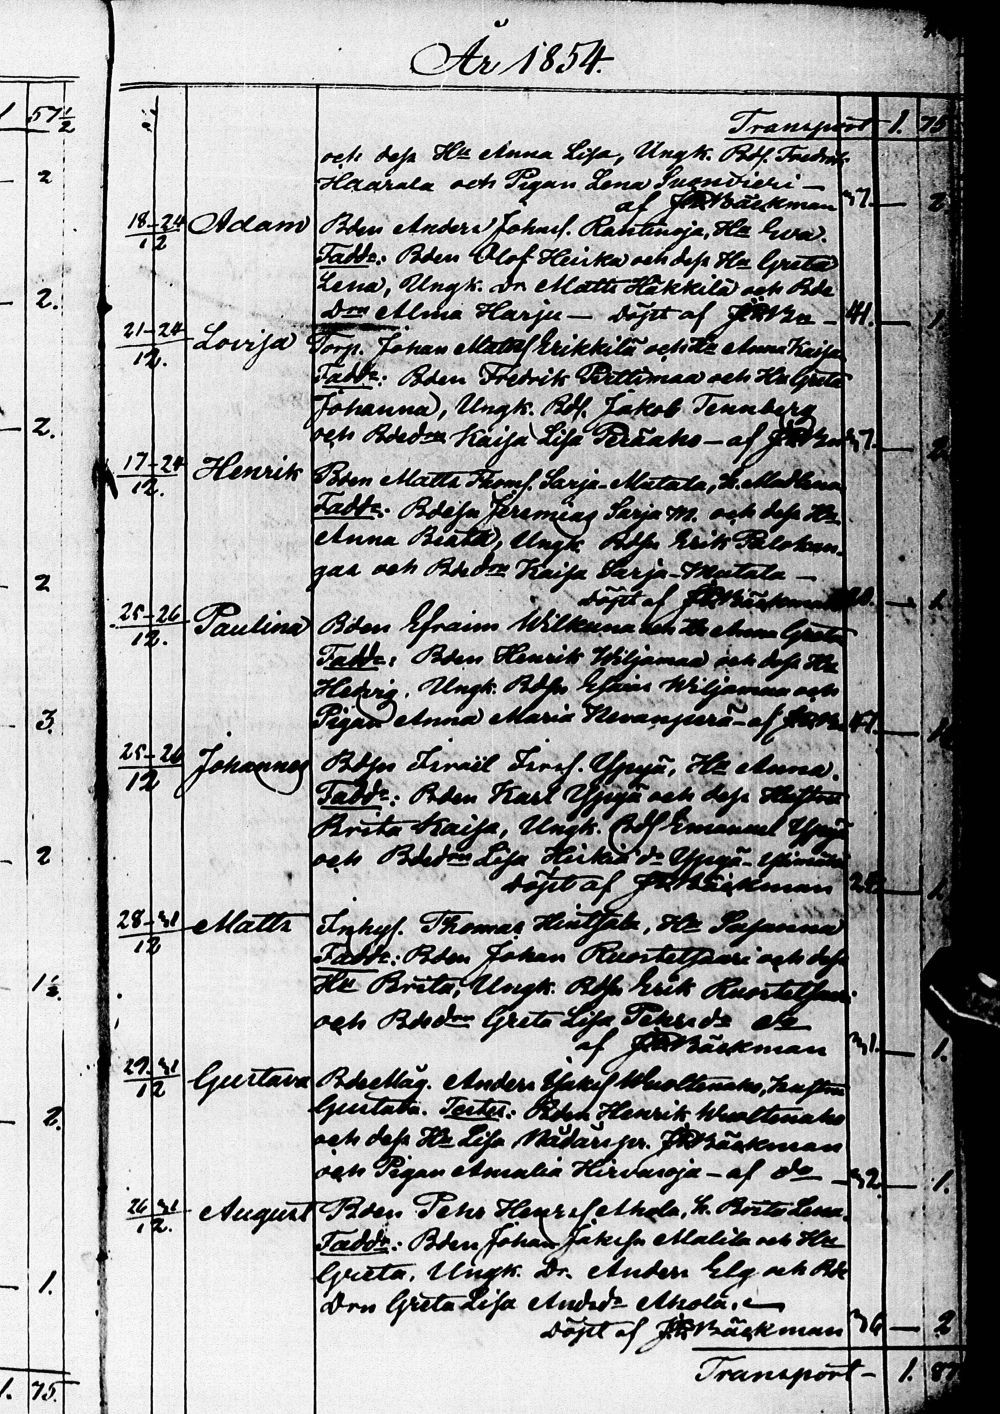 År 1854.
Transport — 1. 75
och dess Hu Anna Lisa, Ungk. Bds. Fredrik
Haarala och Pigan Lena
af J. Bäckman 37. — 2.
18–24/12 Adam Bden Anders Johnss. Rautinoja, Hu Eva.
Fadd: Bden Olof Heikka och dess Hu Greta
Lena, Ungk. Dr Matts Häkkilä och Bde
Drn Alma Harju — Döpt af 41. — 1.
21–24/12. Lovisa Torp. Johan Matss Erikkilä och Hu Anna Kaisa
Fadd: Bden Fredrik Perttimaa och Hu Greta
Johanna, Ungk. Bds. Jakob Tennberg
och Bdedrn Kaisa Lisa — af 37. — 2
17–24/12. Henrik Bden Matts Thoms. Sarja-Matala, H. Madlena
Fadd: Bdesn Jeremias Sarja M. och dess Hu
Anna Beata, Ungk. Bdsn Erik Palokan-
gas och Bdedrn Kaisa Sarja-Matala —
Döpt af J. Bäckman — 1.
25–26/12. Paulina Bden Efraim Wilkuna och Hu Anna Greta
Fadd: Bden Henrik Wiljamaa och dess Hu
Hedvig, Ungk. Bdsn Efraim Wiljamaa och
Pigan Anna Maria Nevanperä — af 47. — 1.
25–26/12 Johannes Bdsn Israël Isrs. Yppä, Hu Anna.
Fadd: Bden Karl Yppä och dess Hustru
Brita Kaisa, Ungk. Bds Emanuel Yppä
och Bdedrn Lisa Heikid Yppä-
Döpt af J. Bäckman — 1.
28–31/12 Matts Inhys. Thomas Hintsala, Hu Susanna
Fadd: Bden Johan Ruostetsaari och dess
Hu Brita, Ungk. Bdsn Erik Ruostetsaari
och Bdedrn Greta Lisa Pehrsdr do
af J. Bäckman 31. — 1.
29–31/12 Gustava BdeMåg. Anders Jaks Wuoltenaho, Hustru
Gustava. Testes: Bden Henrik Wuoltenaho
och dess Hu Lisa Nådårspr. J. Bäckman
och Pigan Amalia Hirvasoja — af do 32. — 1.
26–31/12. August Bden Pehr Henrss Ahola, H. Brita Lena.
Fadd: Bden Johan Jakssn Malila och Hu
Greta, Ungk. Dr. Anders Elg och Bde
Drn Greta Lisa Andsdr Ahola.
Döpt af J. Bäckman 36 — 2
Transport — 1. 87
1. 57 1/2
2
2.
2.
2
3.
2
1 1/2.
2.
1.
1. 75.